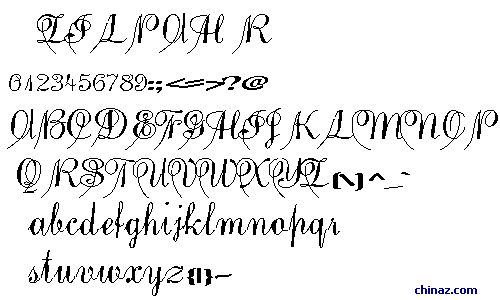 ZILNAH R
0123456789:;<=>?@
ABCDEFGHIJKLMNOP
QRSTUVWXYZ[\]^_`
abcdefghijklmnopqr
stuvwxyz{|}~
chinaz.com